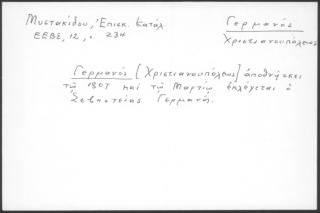 Μυστακίδου, Ἐπισκ. Κατάλ.
ΕΕΒΣ, 12, σ. 234
Γερμανός
Χριστιανουπόλεως
Γερμανός [Χριστιανουπόλεως] ἀποθνήσκει
τῷ 1807 καὶ τῷ Μαρτίῳ ἐκλέγεται ὁ
Σεβαστείας Γερμανή.